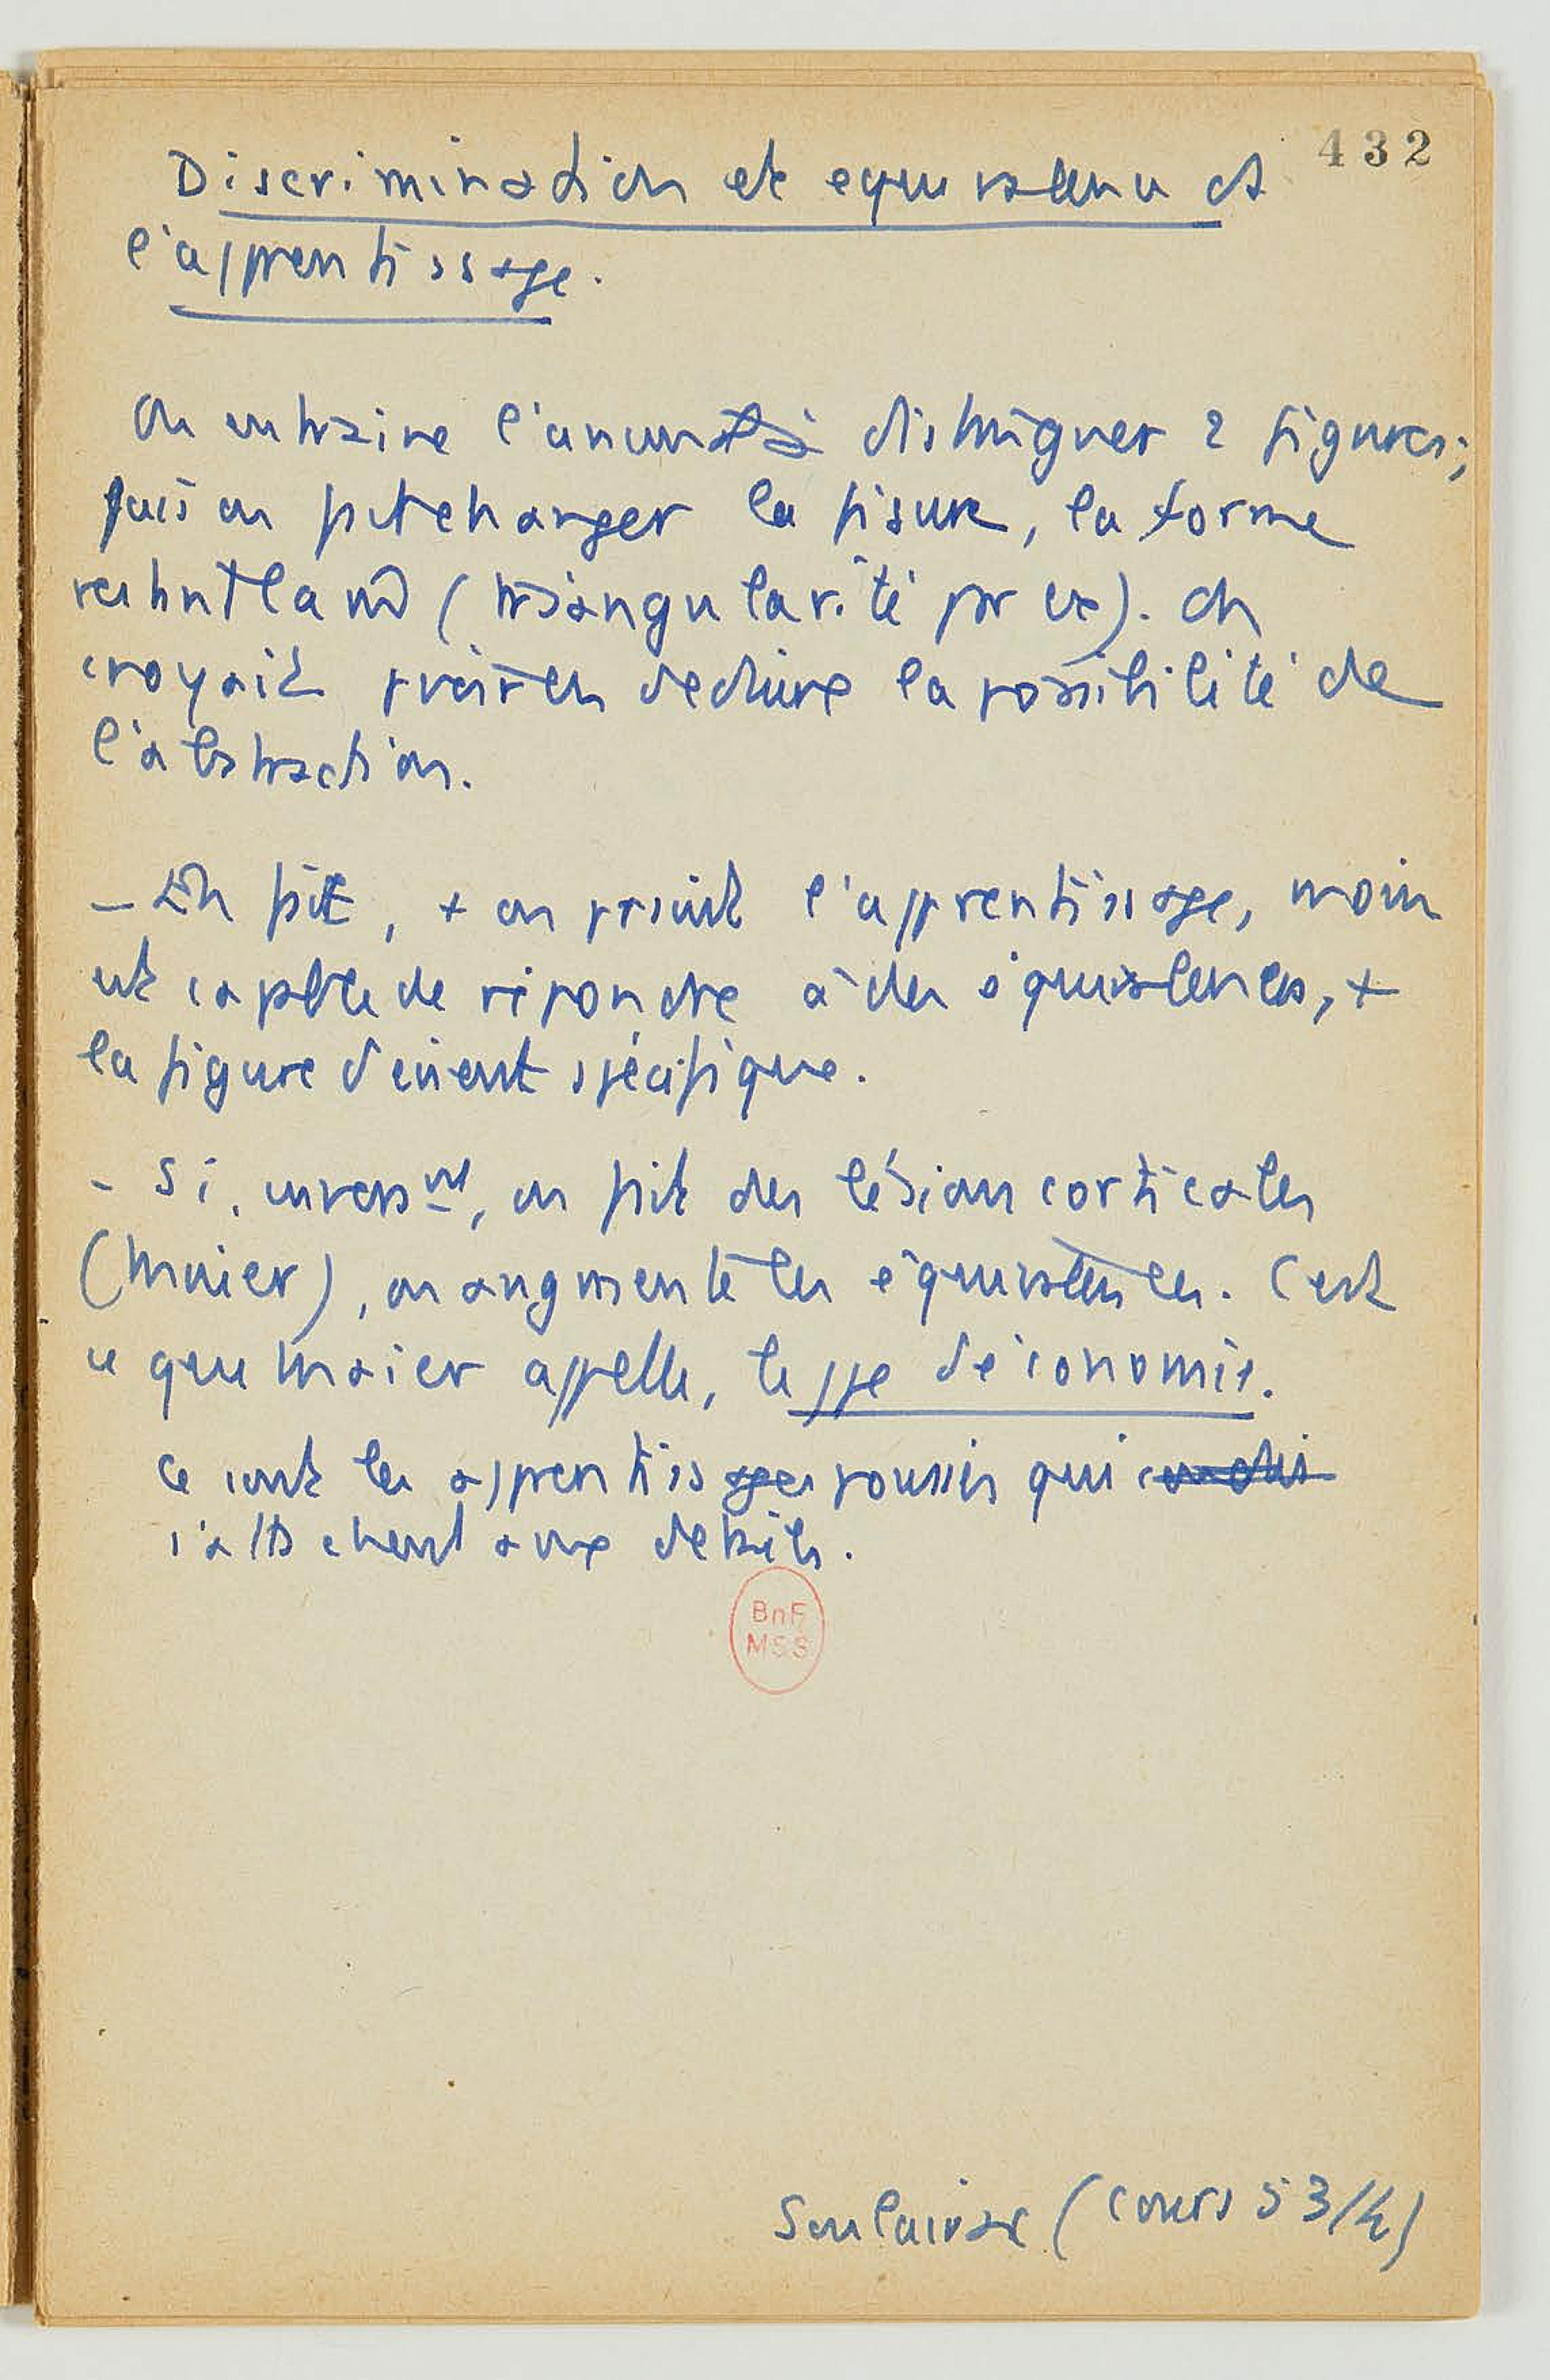 432
Discrimination et equivalence ds
l'apprentissage.
On entraine l'animal à distinguer 2 figures;
puis on pt changer la figure, la forme
restant la m̂ (triangularité pr ex). On
croyait pvoir en deduire la possibilité de
l'abstraction.
- En fait, + on poursuit l'apprentissage, moins
est capble de répondre à des équivalences, +
la figure devient spécifique.
- Si, invers^nt, on fait des lésions corticales
(Maier), on augmente les équivalences. C'est
ce que Maier appelle, le ppe d'économie.
Ce sont les apprentissages poussés qui
s'attachent aux détails.
BnF
MSS
Soulairac (cours 53/4)